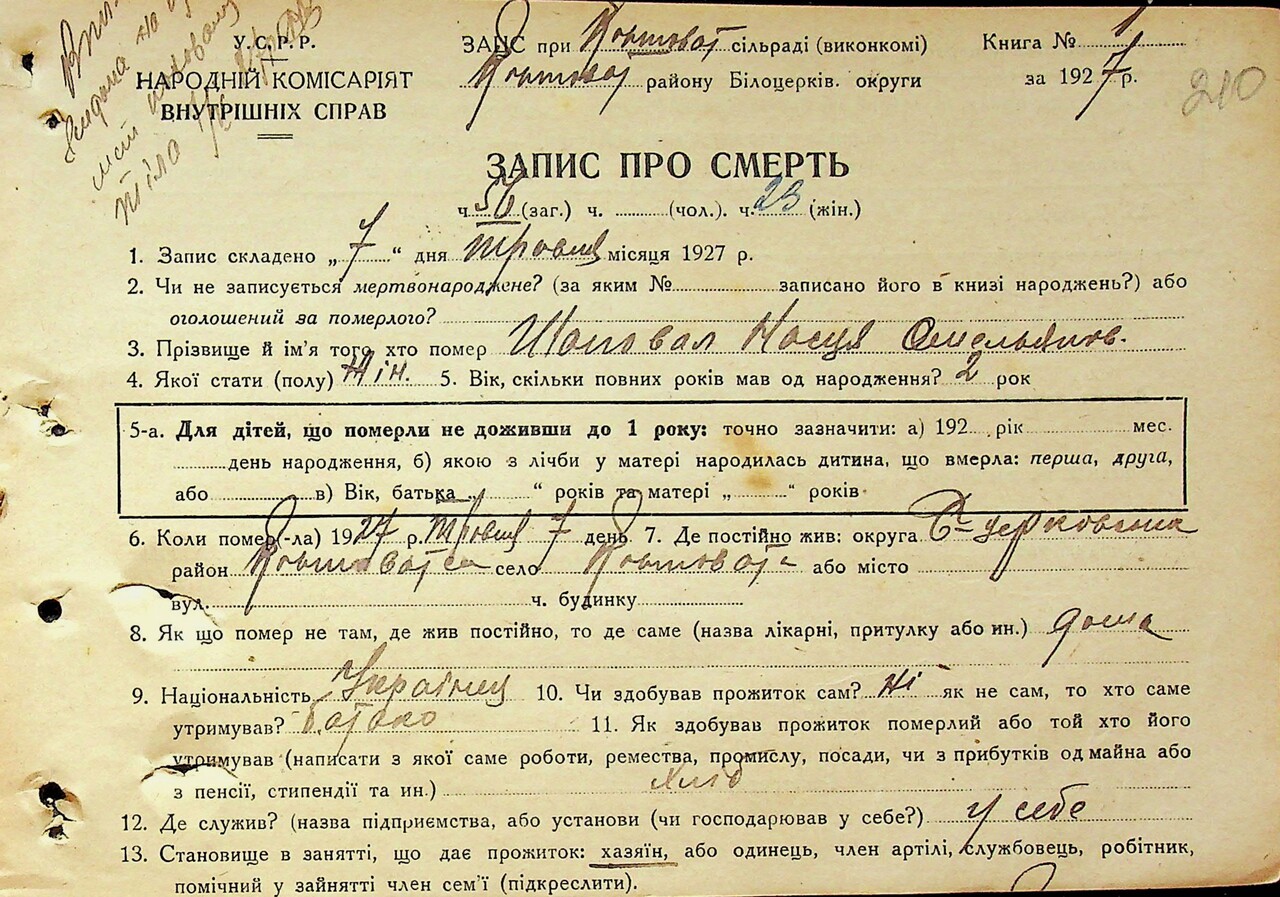 У.С.Р.Р.
НАРОДНІЙ КОМІСАРІЯТ
ВНУТРІШНІХ СПРАВ
ЗАГС при Ковшоват сільраді (виконкомі)
Ковшоват району Білоцерків. округи
Книга № 1
за 1927 р.
210
ЗАПИС ПРО СМЕРТЬ
ч. 56 (заг.) ч. (чол.). ч. 23 (жін.)
1. Запис складено „ 7 “ дня травня місяця 1927 р.
2. Чи не записується мертвонароджене? (за яким № записано його в книзі народжень?) або
оголошений за померлого?
3. Прізвище й ім'я того хто помер Шаповал Настя Омельянов.
4. Якої стати (полу) жін. 5. Вік, скільки повних років мав од народження? 2 рок
5-а. Для дітей, що померли не доживши до 1 року: точно зазначити: а) 192 рік мес.
день народження, б) якою з лічби у матері народилась дитина, що вмерла: перша, друга,
або в) Вік, батька „ “ років та матері „ “ років
6. Коли помер(-ла) 1927 р. травня 7 день 7. Де постійно жив: округа Б-церковська
район Ковшоватса село Ковшовата або місто
вул. ч. будинку
8. Як що помер не там, де жив постійно, то де саме (назва лікарні, притулку або ин.) дома
9. Національність Українец 10. Чи здобував прожиток сам? ні як не сам, то хто саме
утримував? батько 11. Як здобував прожиток померлий або той хто його
утримував (написати з якої саме роботи, ремества, промислу, посади, чи з прибутків од майна або
з пенсії, стипендії та ин.) хліб
12. Де служив? (назва підприємства, або установи (чи господарював у себе?) у себе
13. Становище в занятті, що дає прожиток: хазяїн, або одинець, член артілі, службовець, робітник,
помічний у зайнятті член сем'ї (підкреслити).